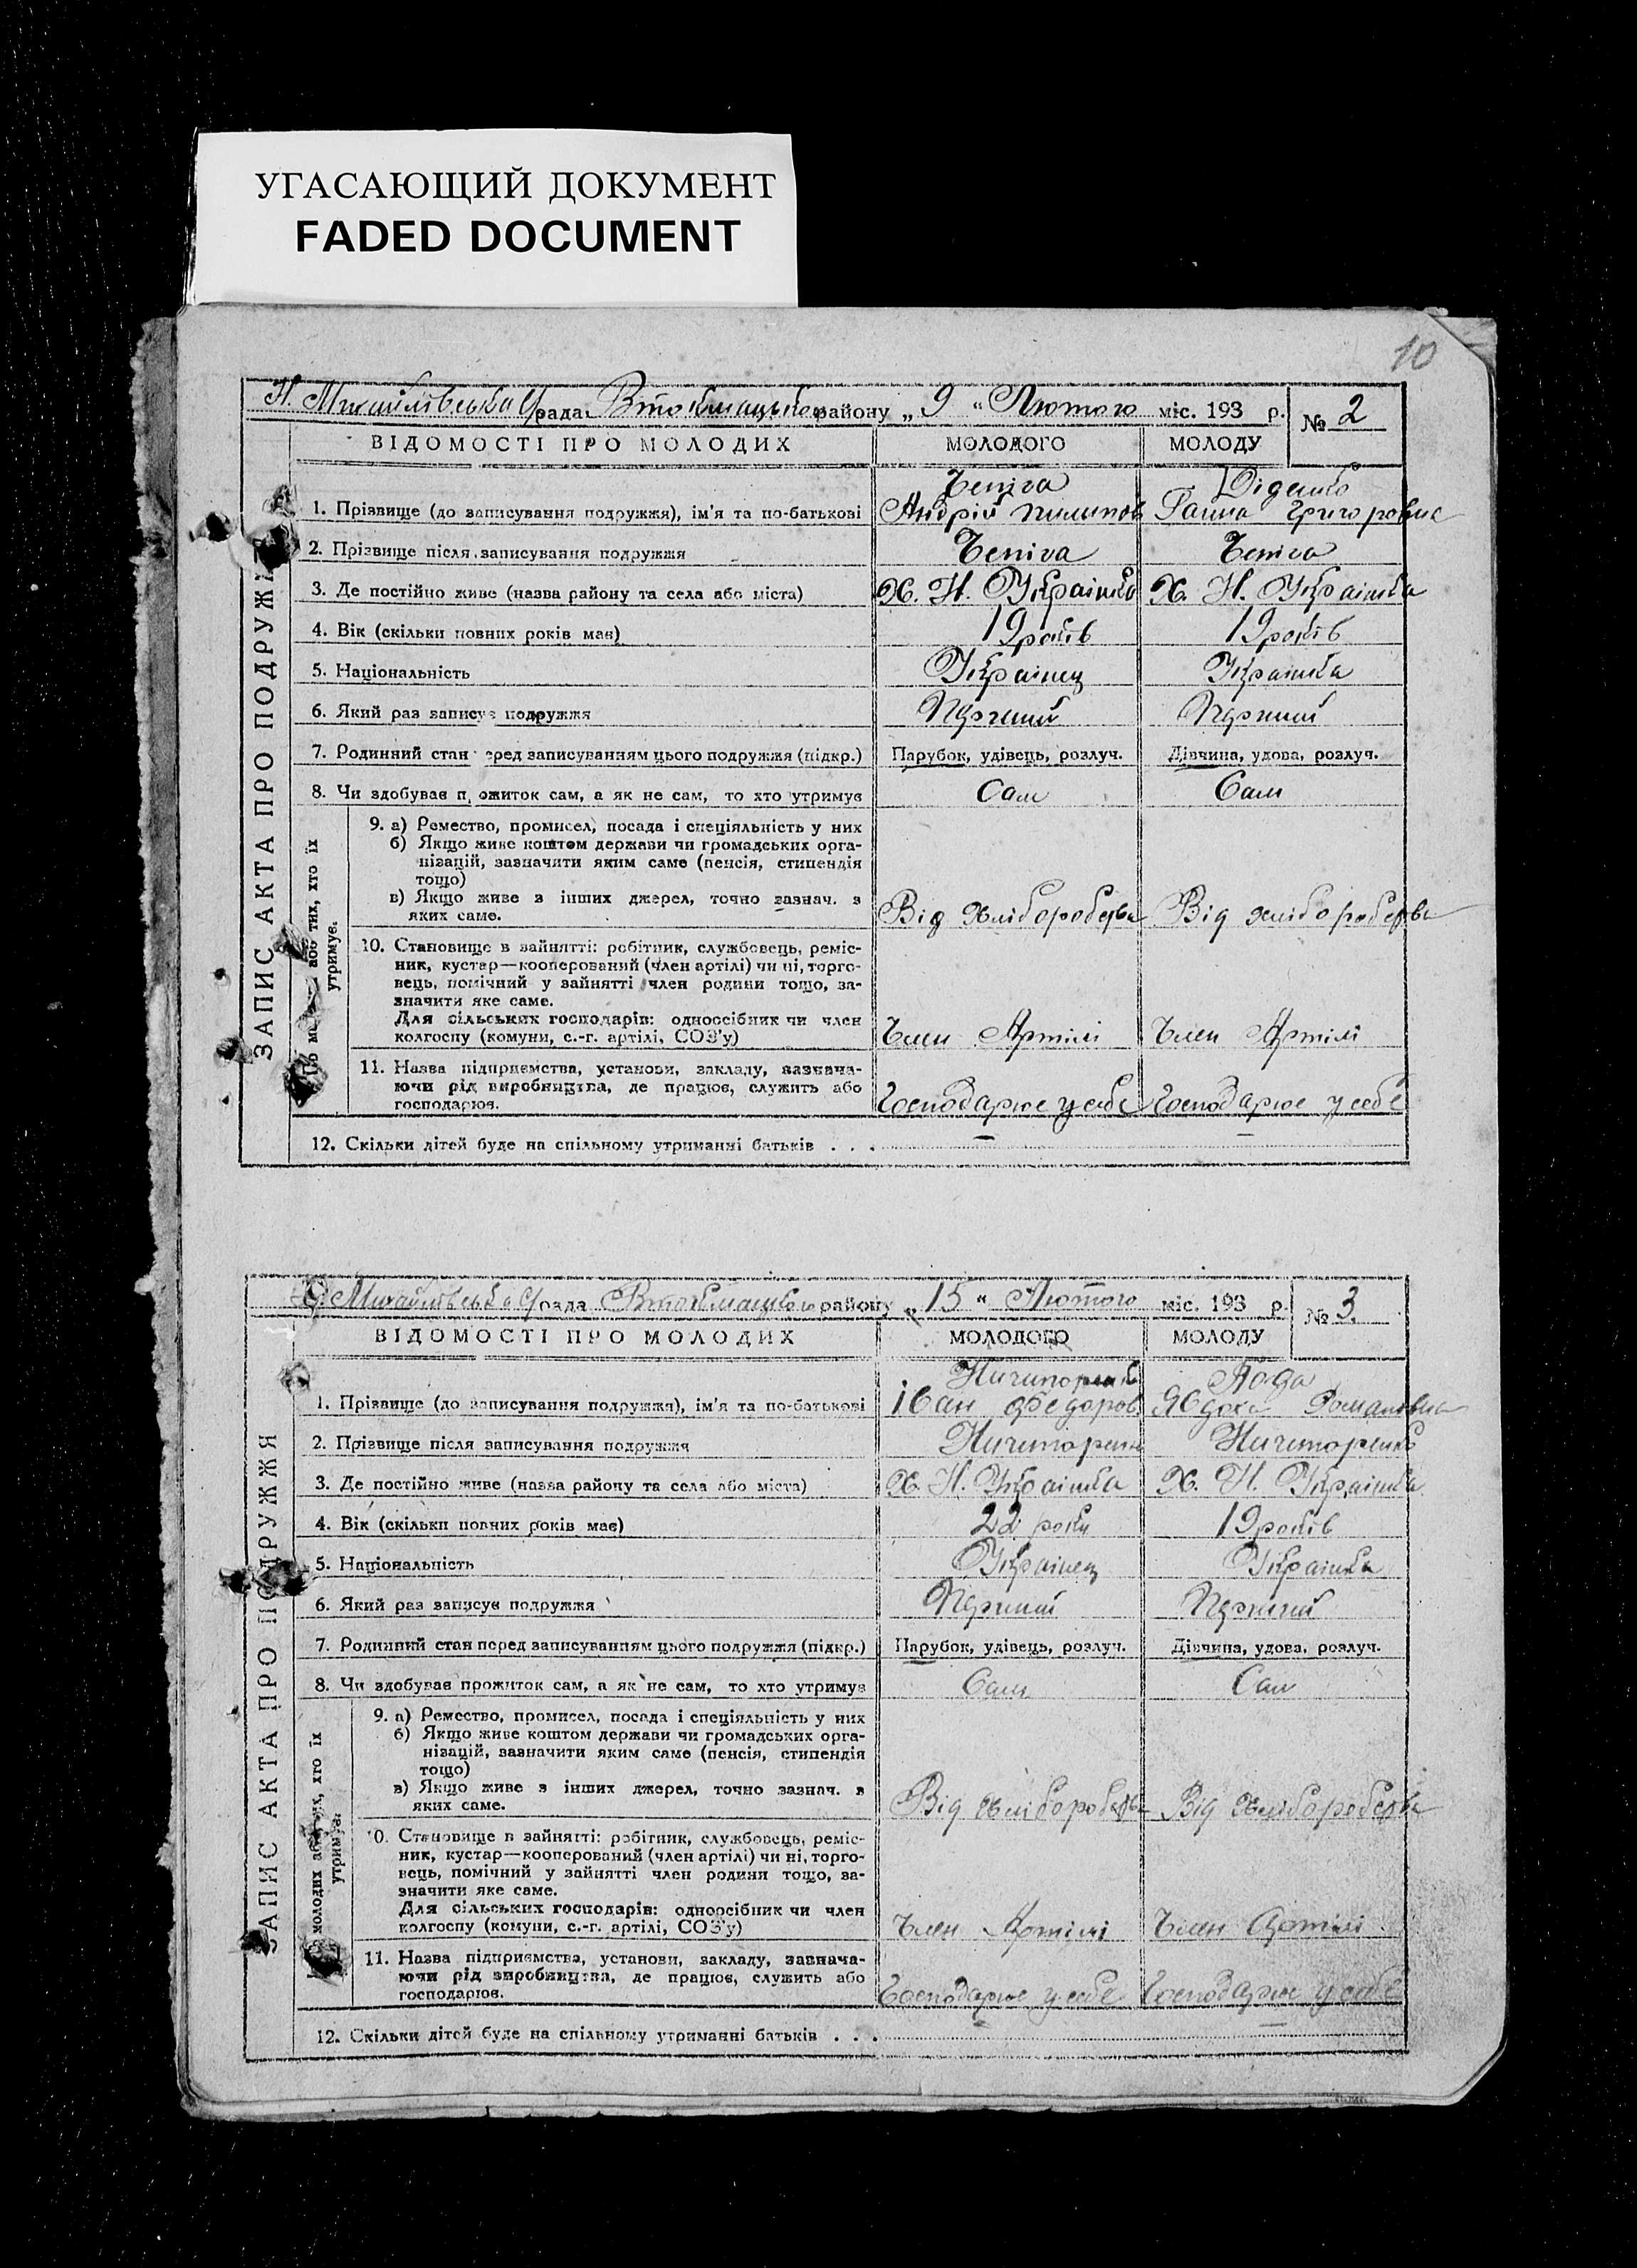 УГАСАЮЩИЙ ДОКУМЕНТ
FADED DOCUMENT
10
Н. Михайлівська рада Втокмацького району „ 9 “ Лютого міс. 193 р. № 2
ВІДОМОСТІ ПРО МОЛОДИХ МОЛОДОГО МОЛОДУ
ЗАПИС АКТА ПРО ПОДРУЖЖЯ
Чепіга Діденко
1. Прізвище (до записування подружжя), ім'я та по-батькові Андрій Пилипов Ганна Григоровна
2. Прізвище після записування подружжя Чепіга Чепіга
3. Де постійно живе (назва району та села або міста) Х. Н. Українка Х. Н. Українка
4. Вік (скільки повних років має) 19 років 19 років
5. Національність Українец Українка
6. Який раз записує подружжя Перший Перший
7. Родинний стан перед записуванням цього подружжя (підкр.) Парубок, удівець, розлуч. Дівчина, удова, розлуч.
8. Чи здобуває прожиток сам, а як не сам, то хто утримує Сам Сам
або тих, хто їх
утримує.
9. а) Ремество, промисел, посада і спеціяльність у них
б) Якщо живе коштом держави чи громадських орга-
нізацій, зазначити яким саме (пенсія, стипендія
тощо)
в) Якщо живе з інших джерел, точно зазнач. з
яких саме. Від хліборобства Від хліборобства
10. Становище в зайнятті: робітник, службовець, реміс-
ник, кустар—кооперований (член артілі) чи ні, торго-
вець, помічний у зайнятті член родини тощо, за-
значити яке саме.
Для сільських господарів: одноосібник чи член
колгоспу (комуни, с.-г. артілі, СОЗ'у) Член Артілі Член Артілі
11. Назва підприємства, установи, закладу, зазнача-
ючи рід виробництва, де працює, служить або
господарює. Господарює у себе Господарює у себе
12. Скільки дітей буде на спільному утриманні батьків . . .
Михайлівська рада Втокмацького району „ 15 “ Лютого міс. 193 р. № 3
ВІДОМОСТІ ПРО МОЛОДИХ МОЛОДОГО МОЛОДУ
ЗАПИС АКТА ПРО ПОДРУЖЖЯ
Ничипоренко
1. Прізвище (до записування подружжя), ім'я та по-батькові Іван Федоров. Явдоха Романовна
2. Прізвище після записування подружжя Ничипоренк Ничипоренко
3. Де постійно живе (назва району та села або міста) Х. Н. Українка Х. Н. Українка
4. Вік (скільки повних років має) 22 роки 19 років
5. Національність Українец Українка
6. Який раз записує подружжя Перший Перший
7. Родинний стан перед записуванням цього подружжя (підкр.) Парубок, удівець, розлуч. Дівчина, удова, розлуч.
8. Чи здобуває прожиток сам, а як не сам, то хто утримує Сам Сам
молодих або тих, хто їх
утримує.
9. а) Ремество, промисел, посада і спеціяльність у них
б) Якщо живе коштом держави чи громадських орга-
нізацій, зазначити яким саме (пенсія, стипендія
тощо)
в) Якщо живе з інших джерел, точно зазнач. з
яких саме. Від хліборобства Від хліборобства
10. Становище в зайнятті: робітник, службовець, реміс-
ник, кустар—кооперований (член артілі) чи ні, торго-
вець, помічний у зайнятті член родини тощо, за-
значити яке саме.
Для сільських господарів: одноосібник чи член
колгоспу (комуни, с.-г. артілі, СОЗ'у) Член Артілі Член Артілі
11. Назва підприємства, установи, закладу, зазнача-
ючи рід виробництва, де працює, служить або
господарює. Господарює у себе Господарює у себе
12. Скільки дітей буде на спільному утриманні батьків . . .